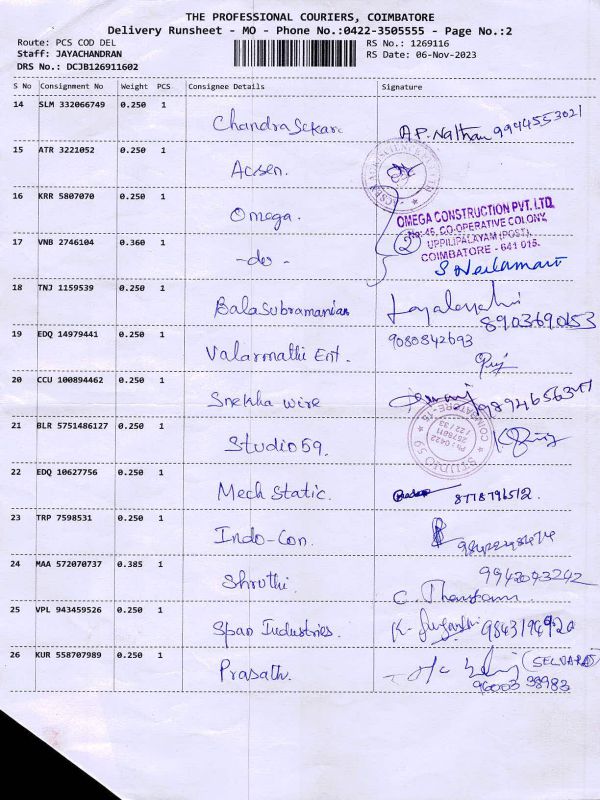 THE PROFESSIONAL COURIERS, COIMBATORE
Delivery Runsheet - MO - Phone No.:0422-3505555 - Page No.:2
Route: PCS COD DEL
RS No.: 1269116
Staff: JAYACHANDRAN
RS Date: 06-Nov-2023
DRS No.: DCJB126911602
S No Consignment No Weight PCS Consignee Details Signature
14 SLM 332066749 0.250 1 Chandra Sekar. A.P. Nathan 9944553021
15 ATR 3221052 0.250 1 Acsen.
16 KRR 5807070 0.250 1 Omega.
OMEGA CONSTRUCTION PVT. LTD,
No: 45, CO-OPERATIVE COLONY,
UPPILIPALAYAM (POST),
COIMBATORE - 641 015.
2
17 VNB 2746104 0.360 1 -do-
18 TNJ 1159539 0.250 1 Balasubramanian 8903690153
19 EDQ 14979441 0.250 1 Valarmathi Ent. 9080842693
20 CCU 100894462 0.250 1 Snekha wire
21 BLR 5751486127 0.250 1 Studio 59.
COIMBATORE-15
STUDIO
22 EDQ 10627756 0.250 1 Mech Static. 8778796512.
23 TRP 7598531 0.250 1 Indo-Con.
24 MAA 572070737 0.385 1 Shruthi. 9942093242
25 VPL 943459526 0.250 1 Span Industries. 9843194920
26 KUR 558707989 0.250 1 Prasath. (SELVARAJ)
96003 38983